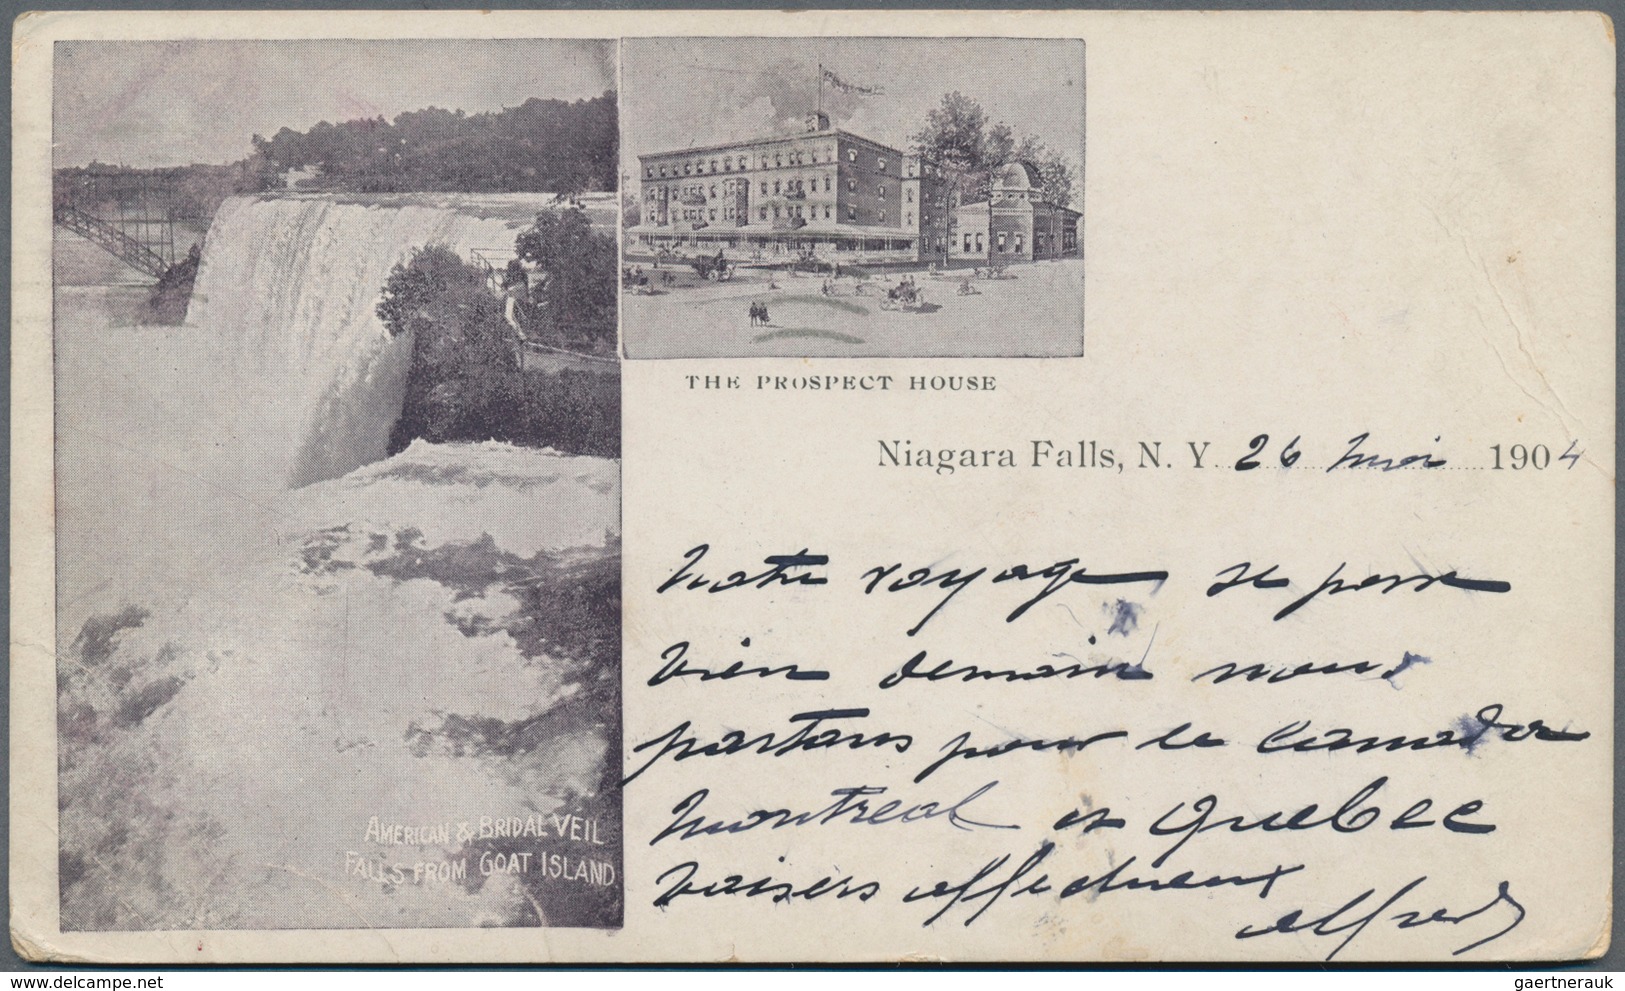 THE PROSPECT HOUSE
Niagara Falls, N. Y. 26 Mai 1904
Notre voyage se passe
bien demain nous
partons pour le Canada
Montreal et Quebec
baisers affectueux
Alfred
AMERICAN & BRIDAL VEIL
FALLS FROM GOAT ISLAND
gaertnerauk